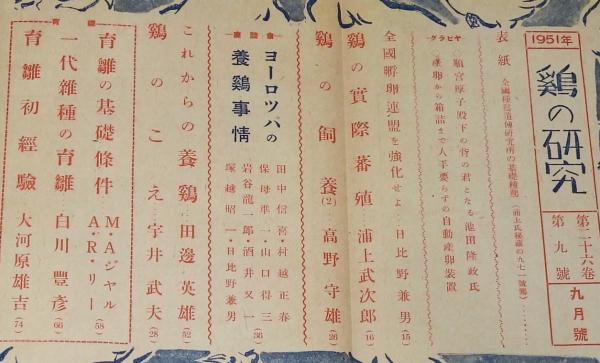 1951年
鷄の研究
第二十六卷
第九號
九月號
表紙
全國種鷄遺傳研究所の基礎種鷄
グラビヤ
順宮厚子殿下の背の君となる池田隆政氏
産卵から箱詰まで人手要らずの自動産卵装置
全國孵卵連盟を強化せよ
日比野兼男(15)
鷄の實際蕃殖
浦上武次郎(16)
鷄の飼養(2)
高野守雄(26)
座談會
ヨーロツパの
養鷄事情
田中信喜・村越正春
保母準一・山口得三
岩谷龍一郎・酒井又一
塚越昭一・日比野兼男(36)
これからの養鷄
田邊英雄(52)
鷄のこえ
宇井武夫(28)
育雛
育雛の基礎條件
M・A・ジヤル
A・R・リー(58)
一代雜種の育雛
白川豐彦(66)
育雛初經驗
大河原雄吉(74)